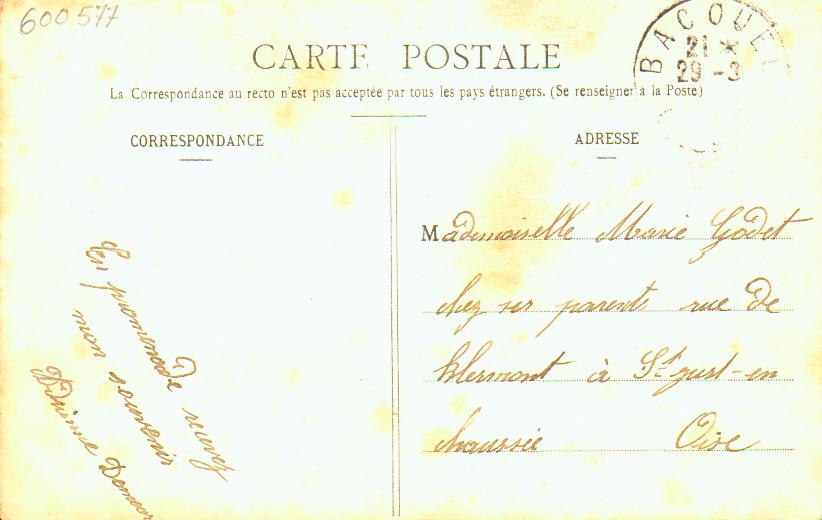 600577
CARTE POSTALE
BACOUEL
21 *
29 -3
La Correspondance au recto n'est pas acceptée par tous les pays étrangers. (Se renseigner à la Poste)
CORRESPONDANCE
En promenade recevez
mon souvenir
ADRESSE
Mademoiselle Marie Godet
chez ses parents rue de
klermont à St just-en
chaussée Oise